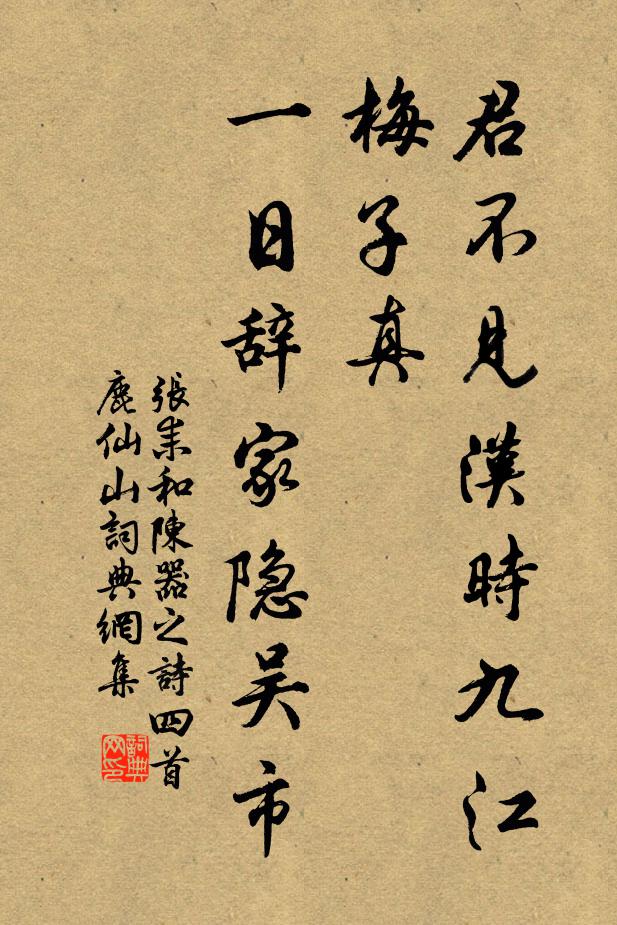 君不見漢時九江
梅子真
一日辞家隐吴市
張耒和陳器之詩四首
鹿仙山詞典網集
詞典
网印